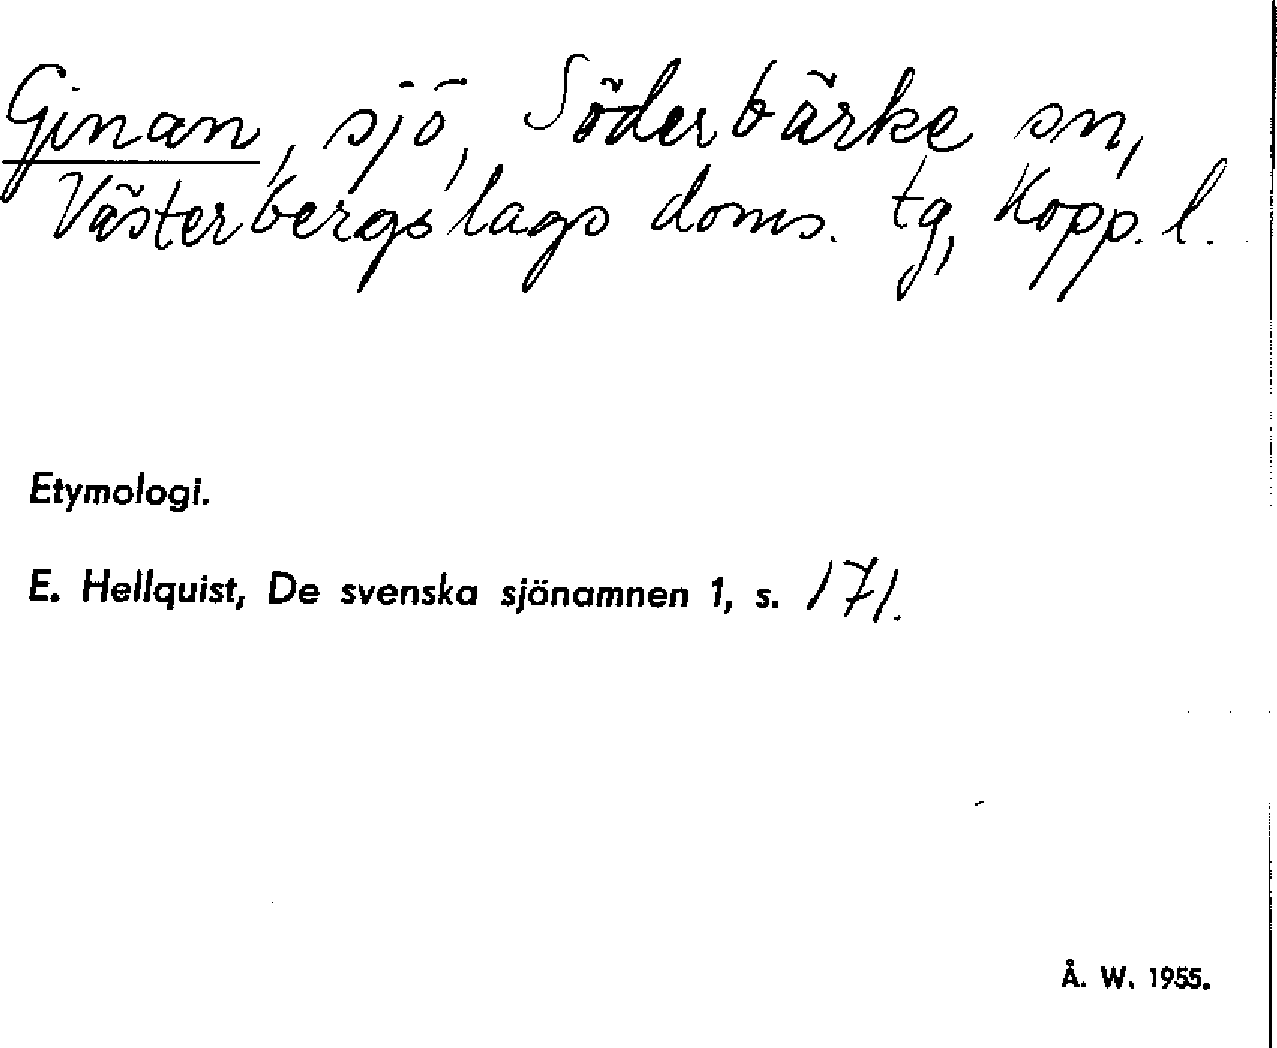 Ginan, sjö, Söderbärke sn,
Västerbergslags doms. tg, Kopp. l.
Etymologi.
E. Hellquist, De svenska sjönamnen 1, s. 171.
Å. W. 1955.